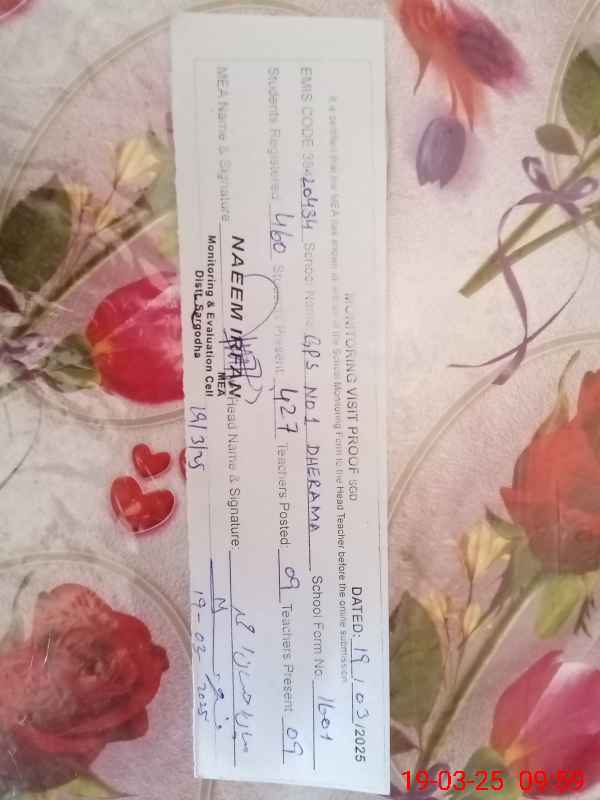 MONITORING VISIT PROOF SGD
DATED: 19 / 03 /2025
It is certified that the MEA has shown the School Monitoring Form to the Head Teacher before the online submission.
EMIS CODE 38420434 School Name GPS NO 1 DHERAMA School Form No. 1601
Students Registered 460 Students Present: 427 Teachers Posted: 09 Teachers Present 09
MEA Name & Signature: Head Name & Signature:
NAEEM IRFAN
MEA
Monitoring & Evaluation Cell
Distt. Sargodha
19/3/25
19-03-2025
19-03-25 09:59